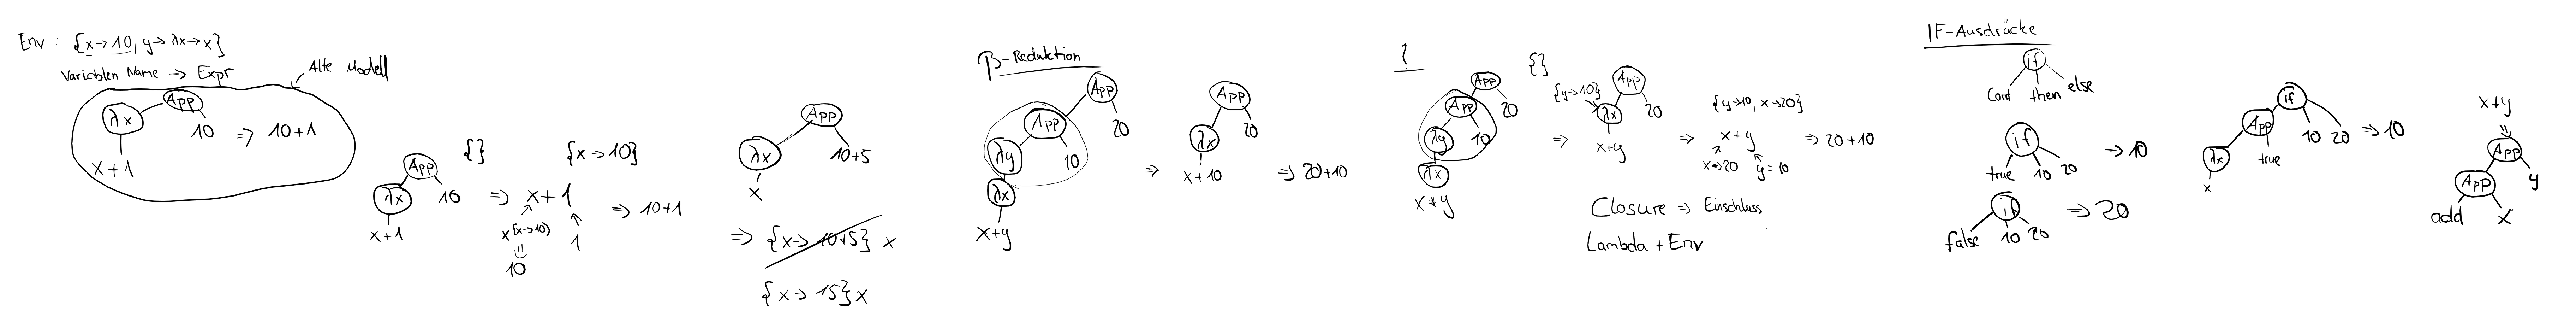 Env : {x→10, y→λx→x}
Variablen Name → Expr
Alte Modell
App
λx
10 ⇒ 10+1
x+1
{}
{x→10}
App
λx
10 ⇒ x+1 ⇒ 10+1
x+1
x{x→10}
1
10
App
λx
10+5
x
⇒ {x→10+5} x
{x→15} x
β-Reduktion
App
App
20
λy
10
λx
x+y
⇒
App
λx
20
x+10
⇒ 20+10
?
{}
App
App
20
λy
10
λx
x+y
⇒
{y→10}
App
λx
20
x+y
⇒
{y→10, x→20}
x+y
x→20
y=10
⇒ 20+10
Closure ⇒ Einschluss
Lambda + Env
IF-Ausdrücke
if
Cont then else
if
true 10 20
⇒ 10
if
false 10 20
⇒ 20
if
App
10 20 ⇒ 10
λx
true
x
x+y
⇓
App
App
y
add
x